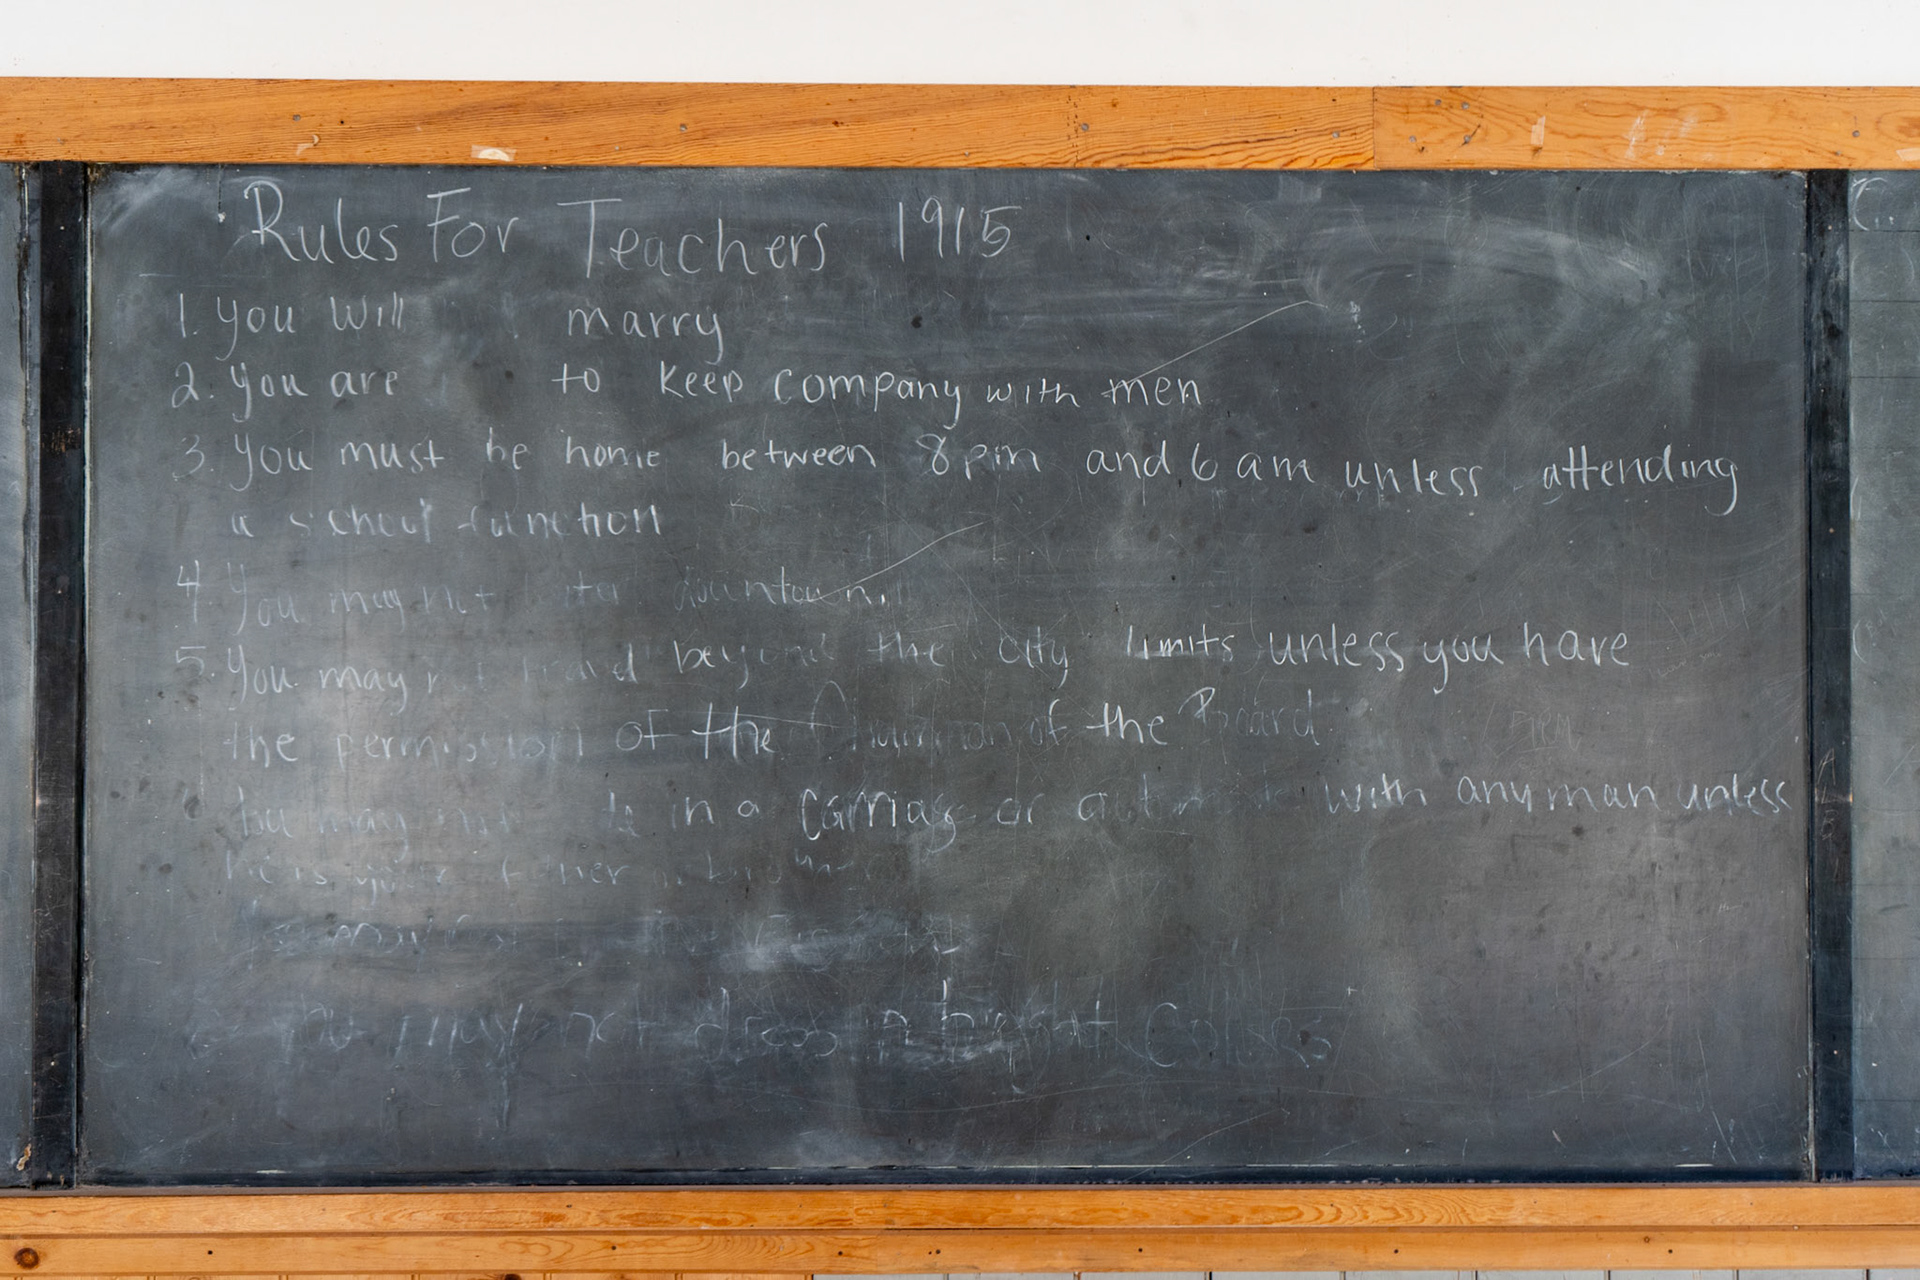 Rules For Teachers 1915
1. You will marry
2. You are to keep company with men
3. You must be home between 8pm and 6 am unless attending
a school function
4. You may not downtown.
5. You may beyond the city limits unless you have
the permission of the of the Board
may in a carriage or with any man unless
he is your
You may not dress in bright colors